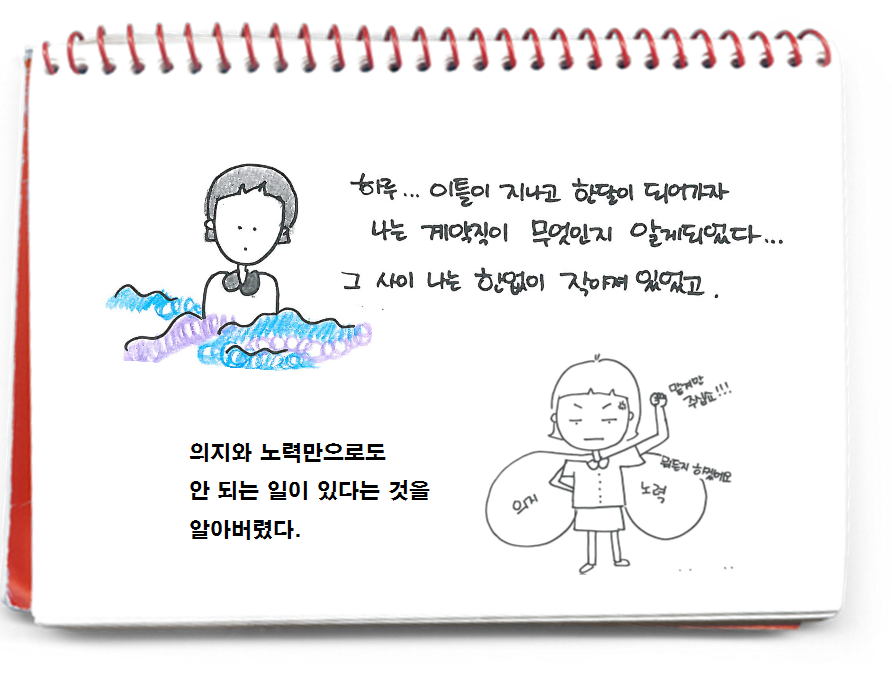 하루... 이틀이 지나고 한달이 되어가자
나는 계약직이 무엇인지 알게되었다...
그 사이 나는 한없이 작아져 있었고.
맡겨만
주십쇼!!!
의지와 노력만으로도
안 되는 일이 있다는 것을
알아버렸다.
뭐든지 하겠어요
의지
노력